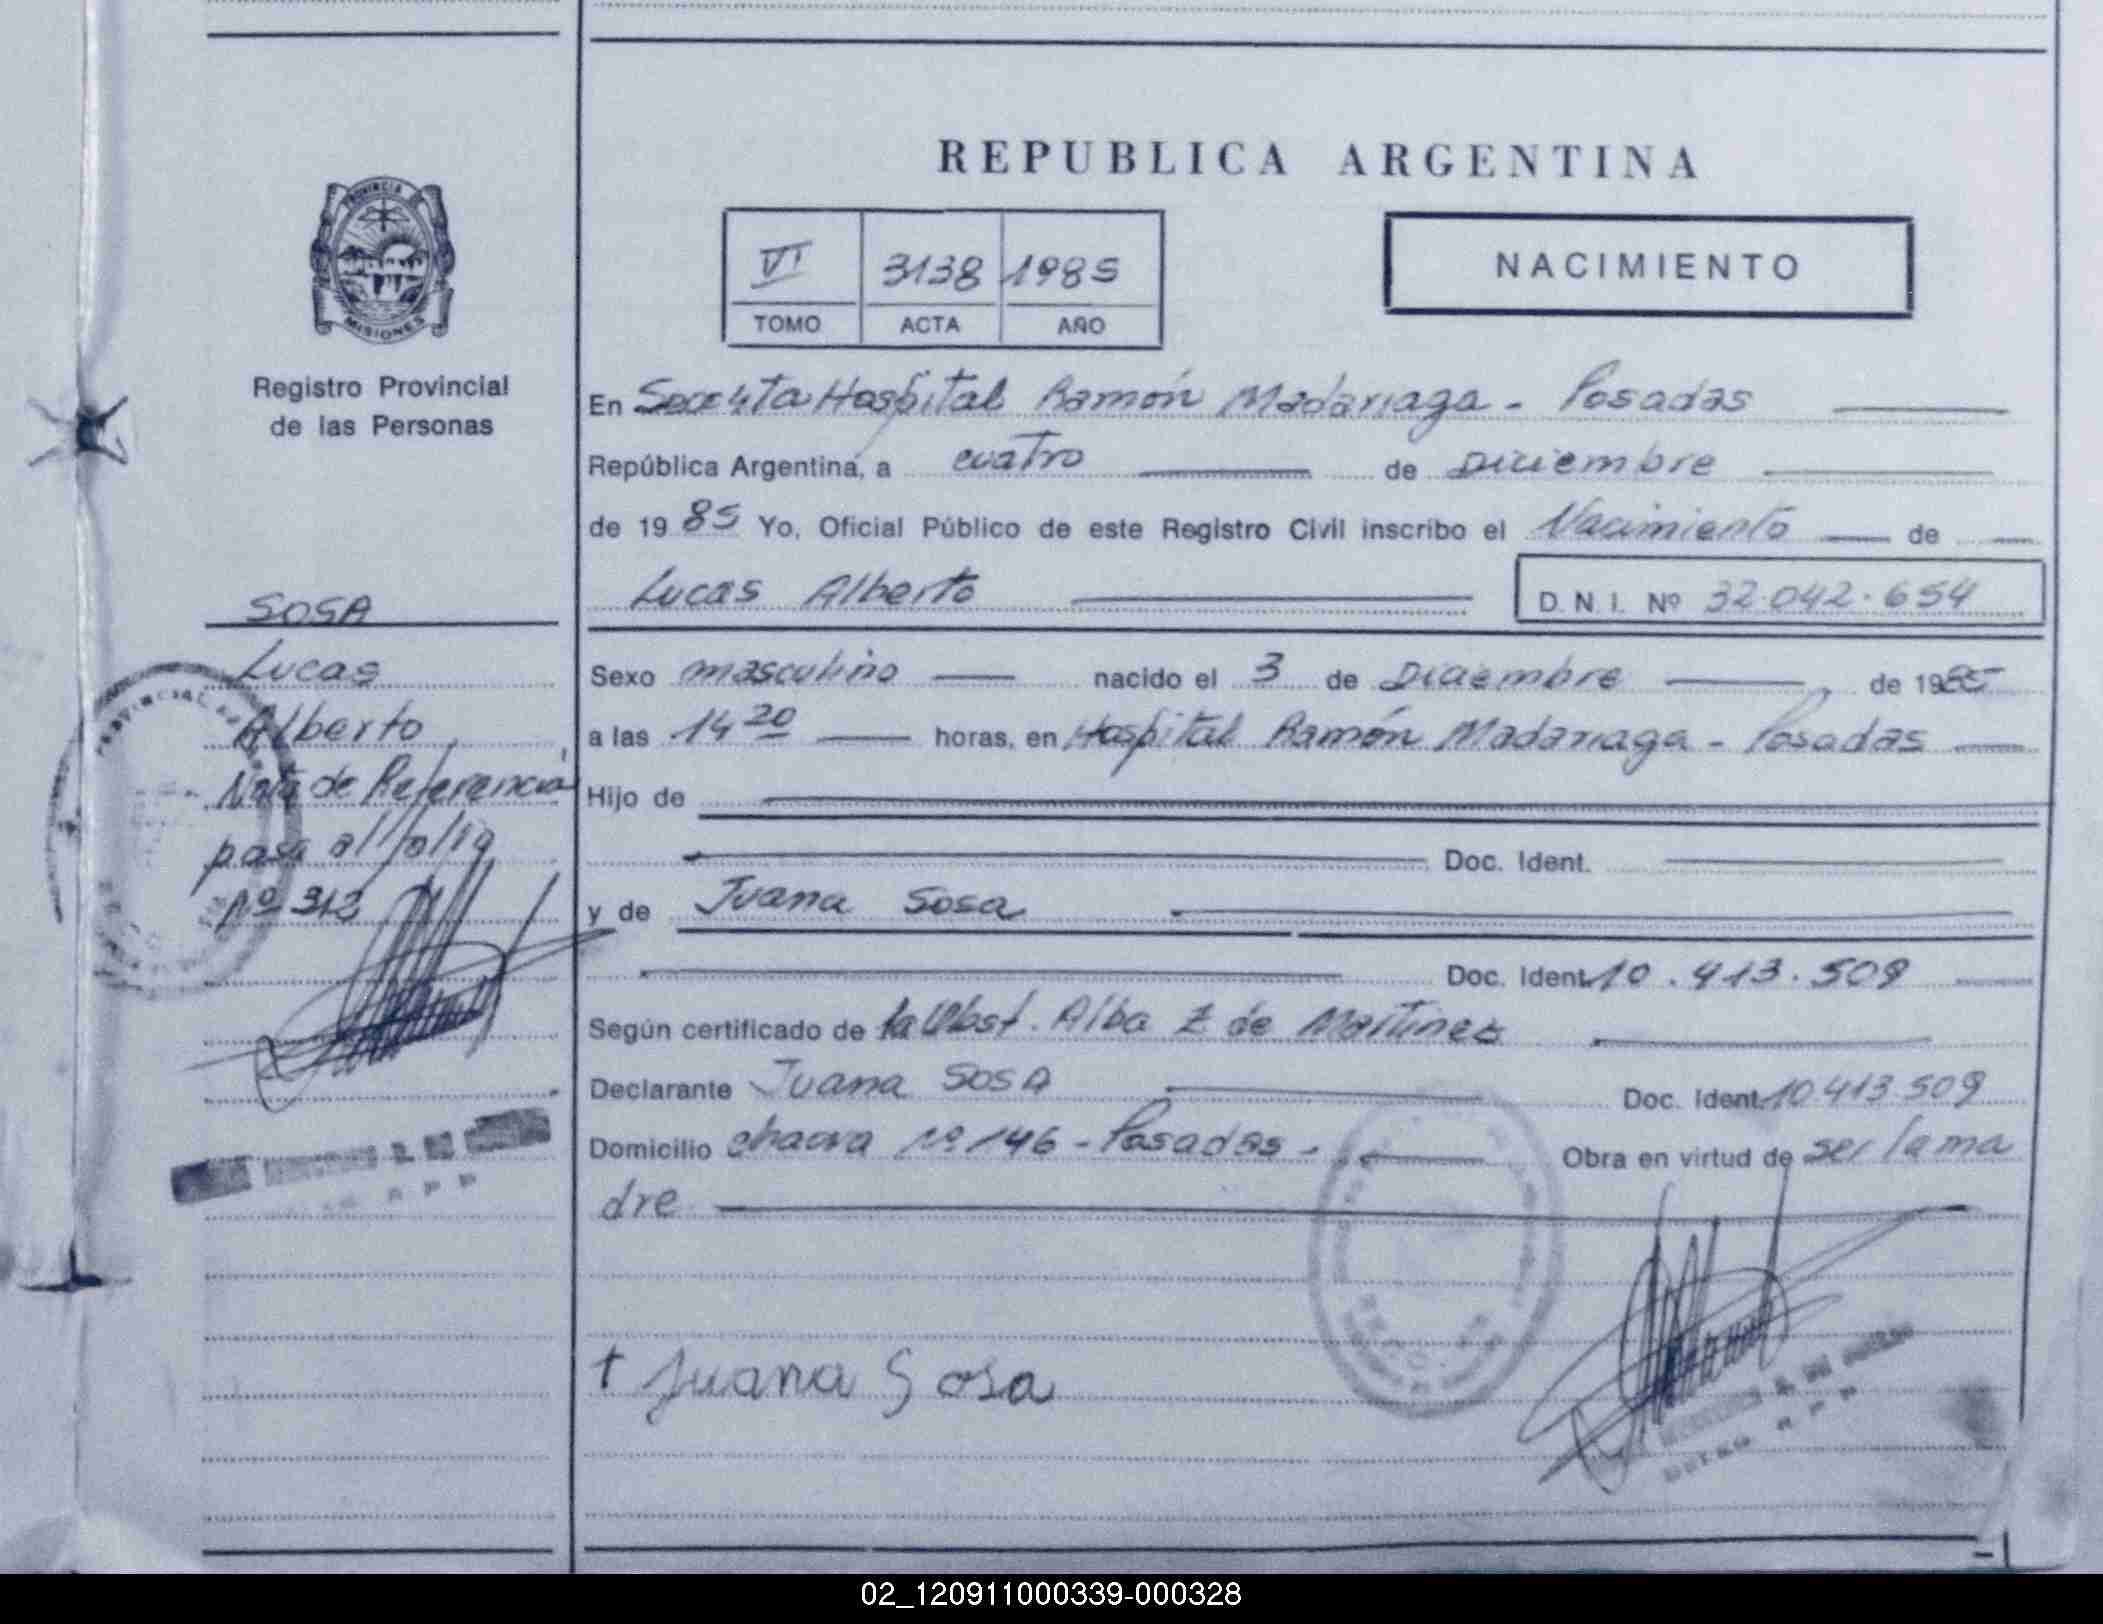 REPUBLICA ARGENTINA
PROVINCIA
MISIONES
Registro Provincial
de las Personas
VI 3138 1985
TOMO ACTA AÑO
NACIMIENTO
En Secc 4ta Hospital Ramón Madariaga - Posadas
República Argentina, a cuatro de Diciembre
de 1985 Yo, Oficial Público de este Registro Civil inscribo el Nacimiento de
Lucas Alberto D.N.I. Nº 32.042.654
SOSA
Lucas
Alberto
Nota de Referencia
pasa al folio
Nº 312
Sexo masculino nacido el 3 de Diciembre de 1985
a las 14 20 horas, en Hospital Ramón Madariaga - Posadas
Hijo de
Doc. Ident.
y de Juana Sosa
Doc. Ident. 10.413.509
Según certificado de la Obst. Alba Z de Martinez
Declarante Juana Sosa Doc. Ident. 10.413.509
Domicilio chacra Nº 146 - Posadas - Obra en virtud de ser la ma
dre
† Juana Sosa
02_120911000339-000328